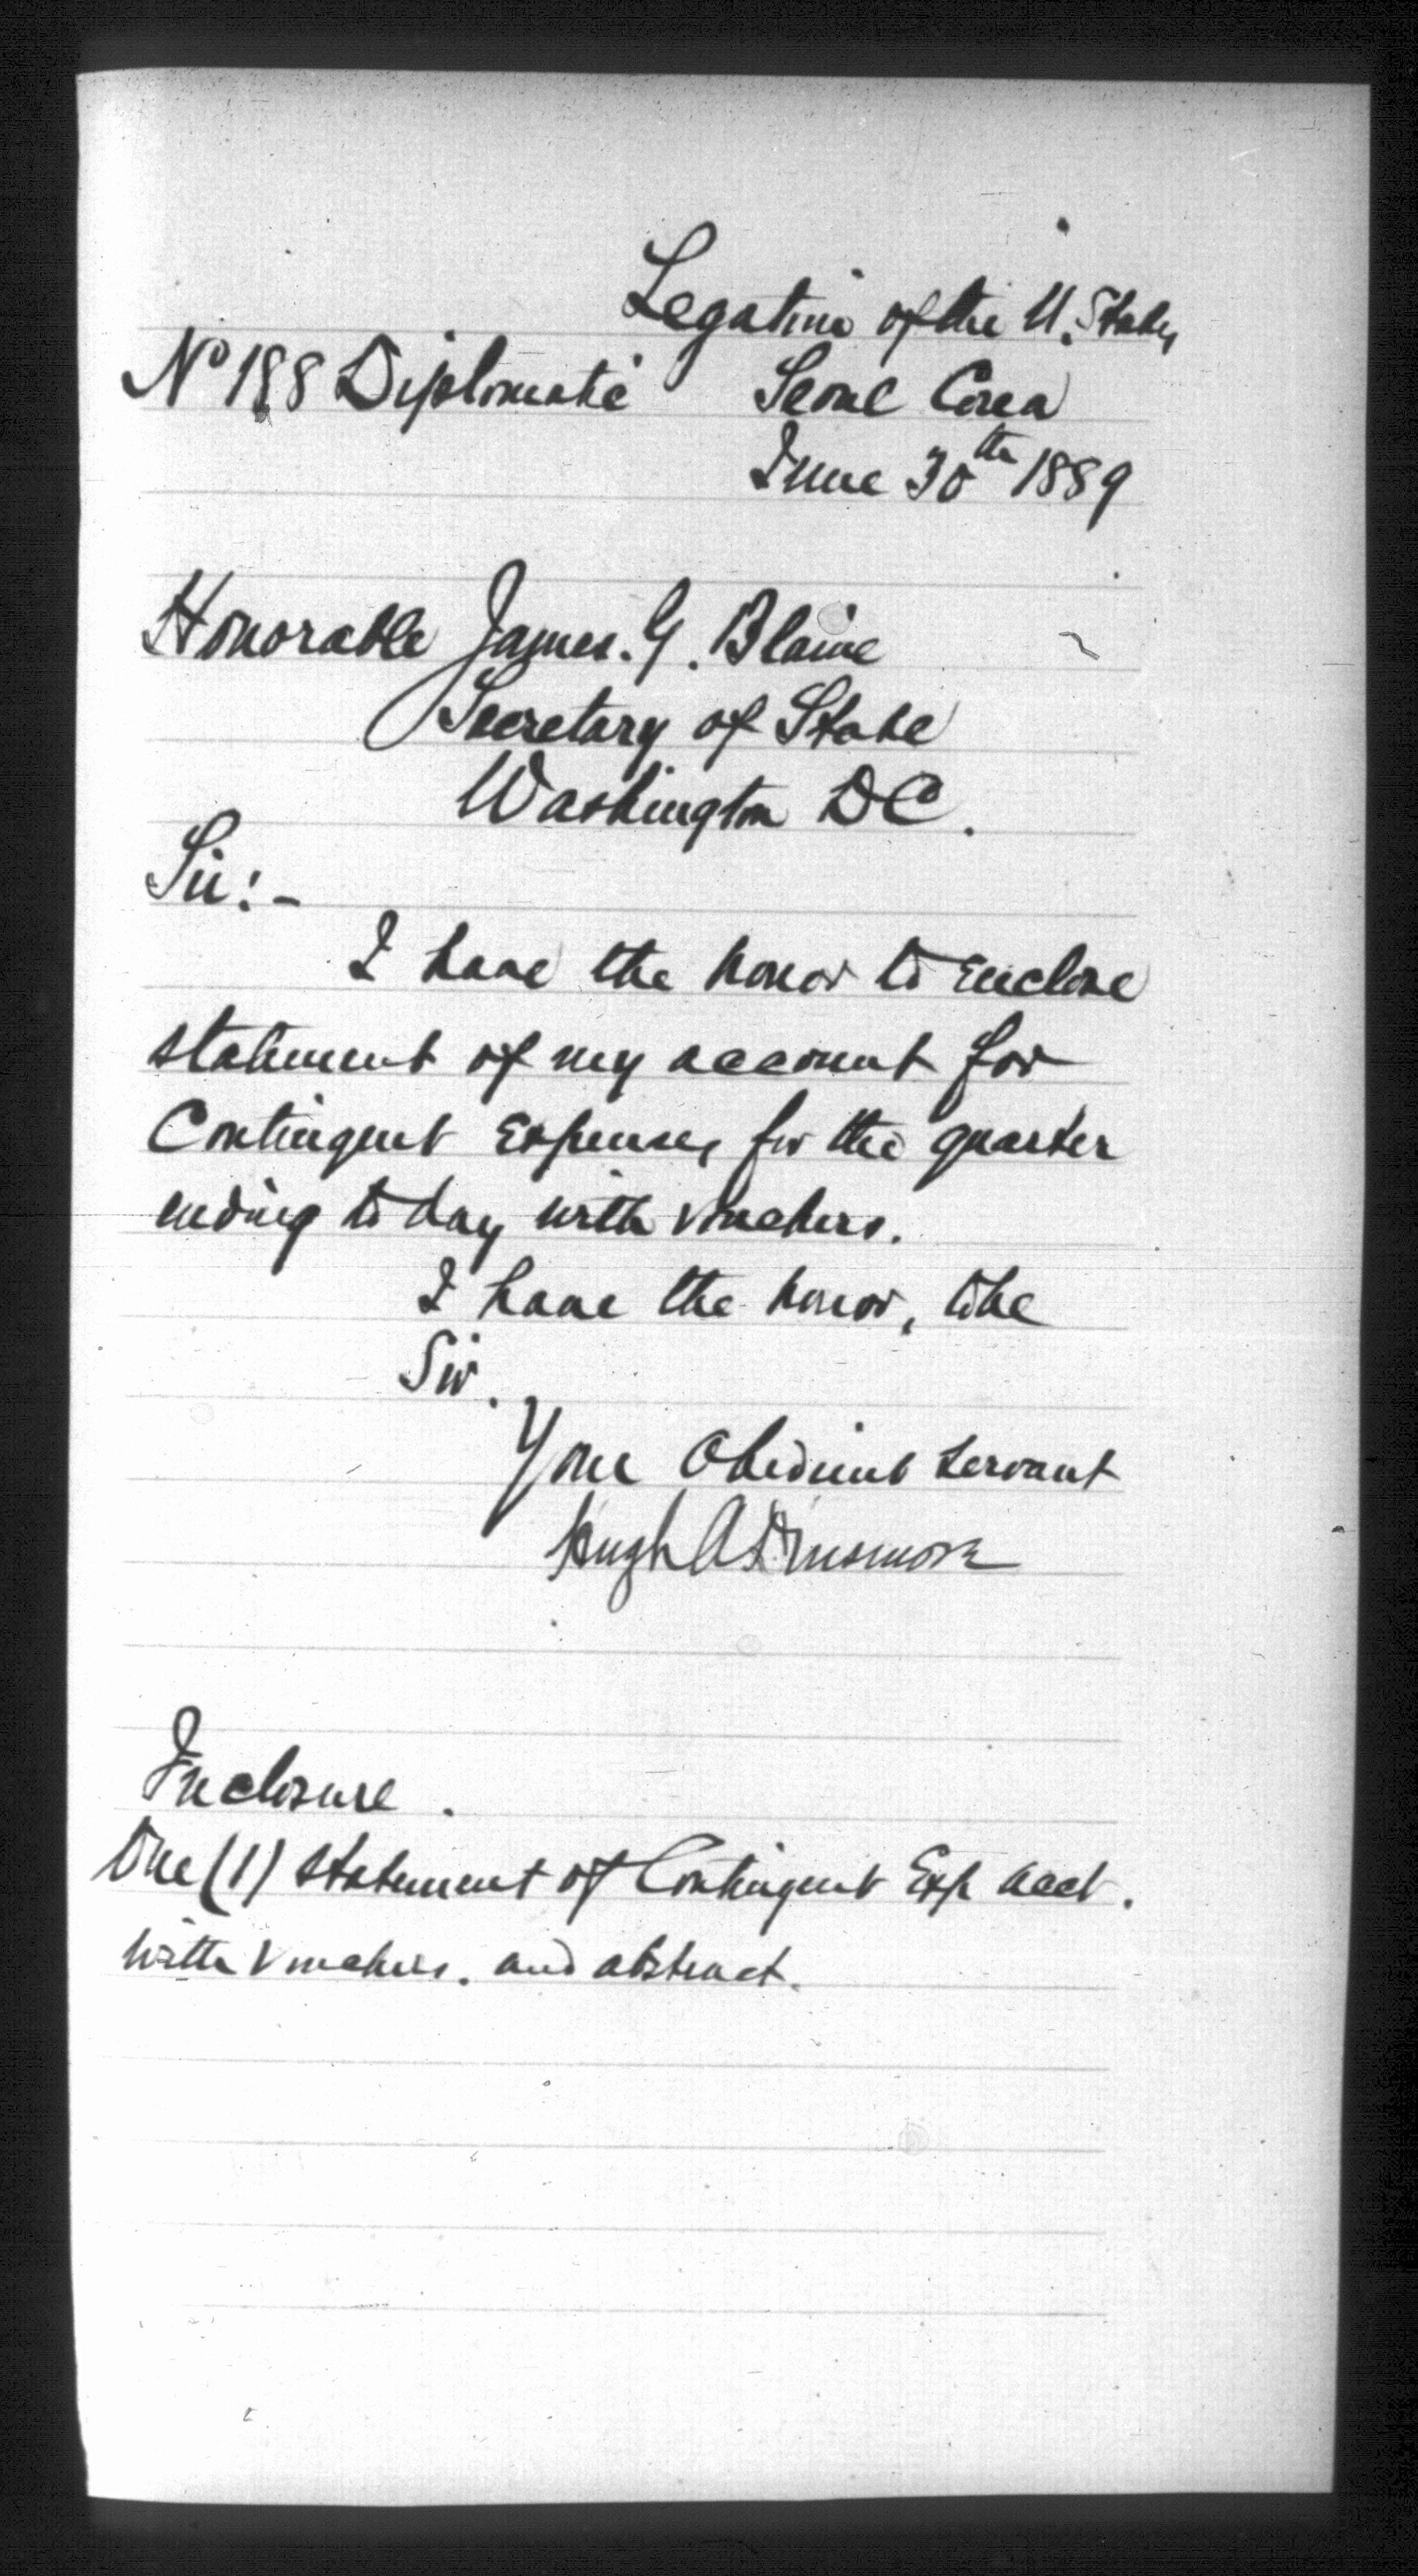 Legation of the U. States
No 188 Diplomatic Seoul Corea
June 30th 1889
Honorable James. G. Blaine
Secretary of State
Washington DC.
Sir:-
I have the honor to enclose
statement of my account for
Contingent Expenses for the quarter
ending to day with vouchers.
I have the honor, to be
Sir.
Your Obedient servant
Hugh A Dinsmore
Inclosure.
One (1) statement of Contingent Exp acct.
with Vouchers. and abstract.